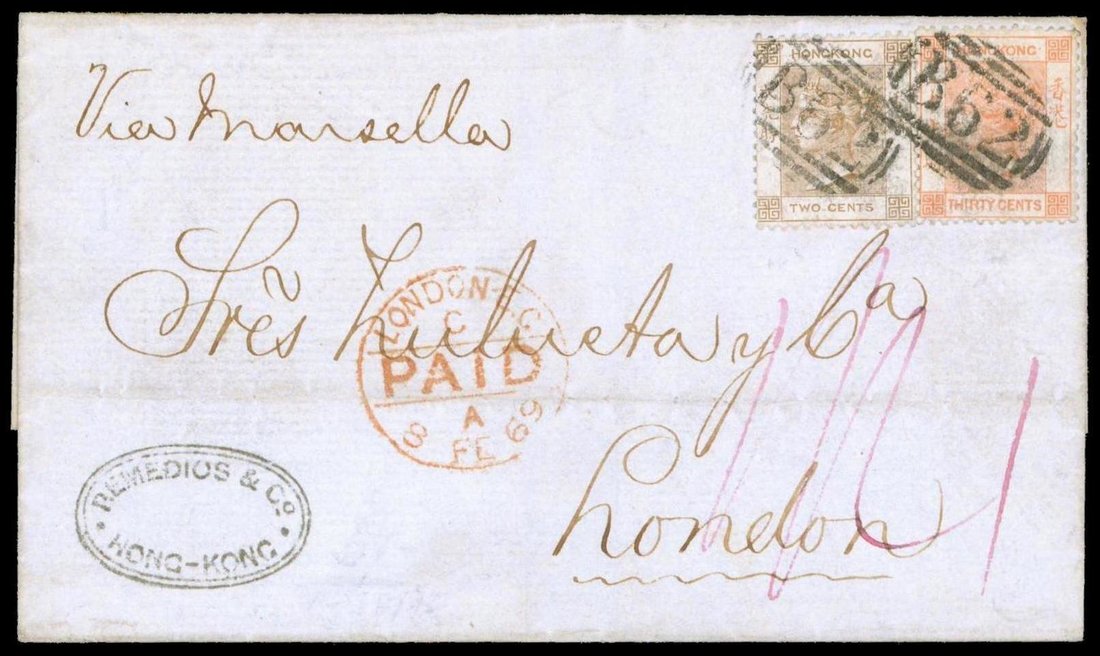 Via Marsella
HONGKONG
TWO CENTS
B62
HONGKONG
THIRTY CENTS
B62
Sres Zulueta y Ca
London
LONDON-E.C
C
PAID
A
8 FE 69
REMEDIOS & Co
HONG-KONG